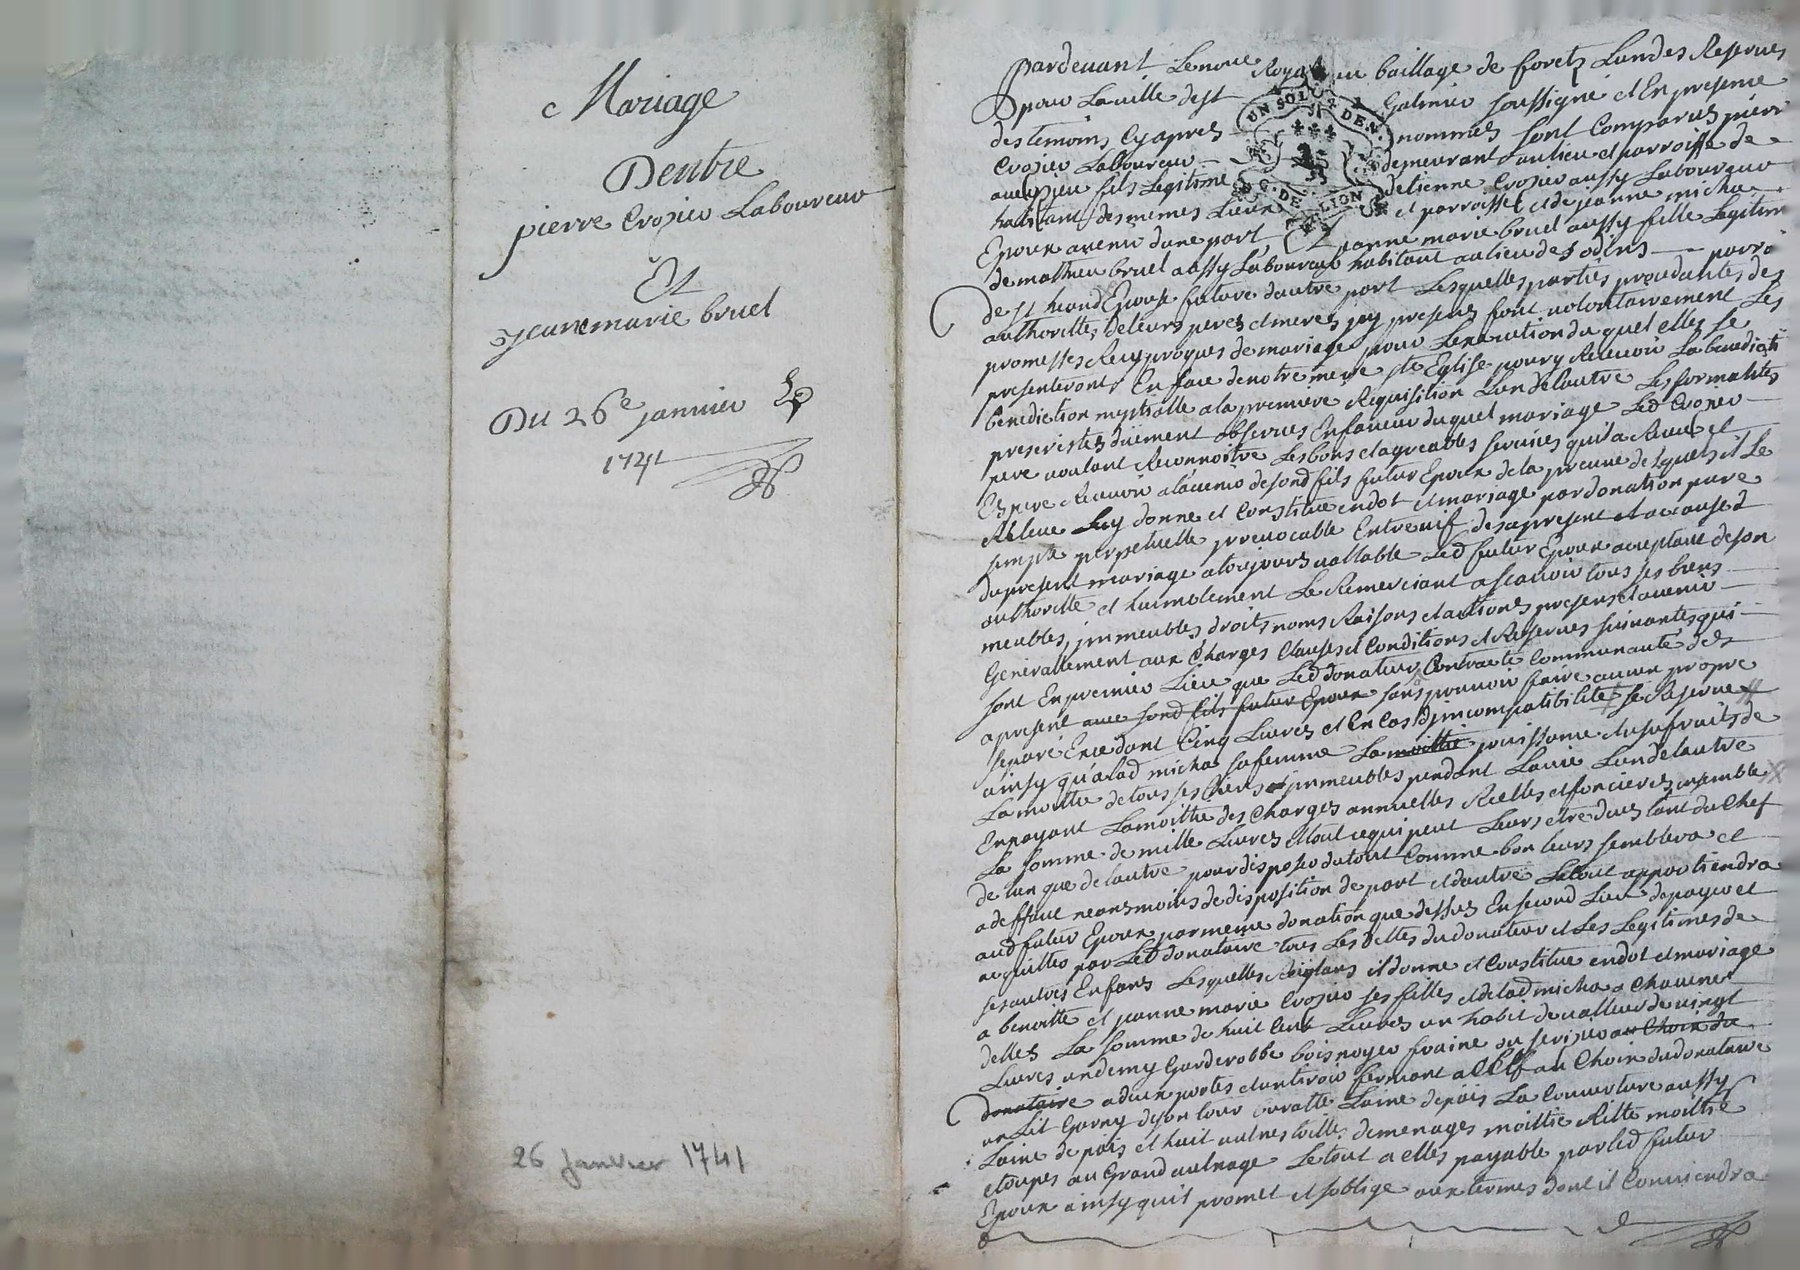 Mariage
Dentre
pierre Crozier Laboureur
Et
jeanne marie bruel
Du 26e janvier
1741
26 janvier 1741
pardevant Le no.re Royal au baillage de forets Lun des Reservés
pour La ville de st Galmier soussigné et En presence
des temoins Cy apres nommés sont Comparus pierre
Crozier Laboureur demeurant au lieu et parroisse de
fils Legitime detienne Crozier aussy Laboureur
habitant des memes Lieux et parroisse et de jeanne micha
Epoux avenir dune part, Et jeanne marie bruel aussy fille Legitime
de mathieu bruel aussy Laboureur habitant au lieu des odins parro
de st heand Epouse future dautre part Lesquelles parties procedantes des
authorittés de leurs peres et meres jcy presens font volontairement Les
promesses Reciproques de mariage pour Lexecution du quel elles se
presenteront En face de notre mere ste Eglise pour y Recevoir La benedicti
benediction nuptialle a la premiere Requisition Lun de lautre Les formalités
prescrittes duement observées En faveur duquel mariage Led Crozier
pere voulant Reconnoitre Les bons et agreables services quil a Receu et
Espere Recevoir a lavenir de sond fils futur Epoux de la preuve desquels il Le
Releve Luy donne et Constitue en dot et mariage par donation pure
simple perpetuelle jrrevocable Entre vif des a present et a cause d
du present mariage a toujours vallable Led futur Epoux acceptant de son
authoritté et humblement Le Remerciant ascavoir tous ses biens
meubles, jmmeubles, droits, noms Raisons et actions presens et avenir
Generallement aux Charges Clauses et Conditions et Reserves suivantes qui
sont En premier Lieu que Led donateur Contracte Communauté des
a present avec sond fils futur Epoux sans pouvoir faire aucun propre
separé Excedant Cinq Livres et En Cas djncompatibilité se Reserve
ainsy qua lad micha sa femme La moittié jouissance et usufruits de
La moittié de tous ses biens jmmeubles pendant La vie Lun de lautre
En payant La moittié des Charges annuelles Reelles et foncieres ensemble
La somme de mille Livres et tout ce qui peut Leurs etre dues tant du Chef
de lun que de lautre pour disposer du tout Comme bon leurs semblera et
a deffaut neansmoins de disposition de part et dautre Le tout appartiendra
aud futur Epoux par meme donation que dessus En second Lieu de payer et
acquitter par Led donataire tous Les dettes du donateur et Les Legitimes de
ses autres Enfans Lesquelles Reiglans il donne et Constitue en dot et mariage
a benoitte et jeanne marie Crozier ses filles et de lad micha a Chacune
delles La somme de huit Cent Livres un habit de valleur de vingt
Livres un demy Garderobbe bois noyer fraine ou serizier au Choix du
donataire a deux portes et un tiroir fermant a Clef au Choix du donataire
un Lit Garny de son tour Laine de pais La Couverture aussy
Laine de pais et huit aulnes toille de menages moittié Ritte moittié
etoupes au Grand aulnage Le tout a elles payable par led futur
Epoux ainsy quil promet et soblige aux termes dont il Conviendra
UN SOL DEN.
G. DE LION